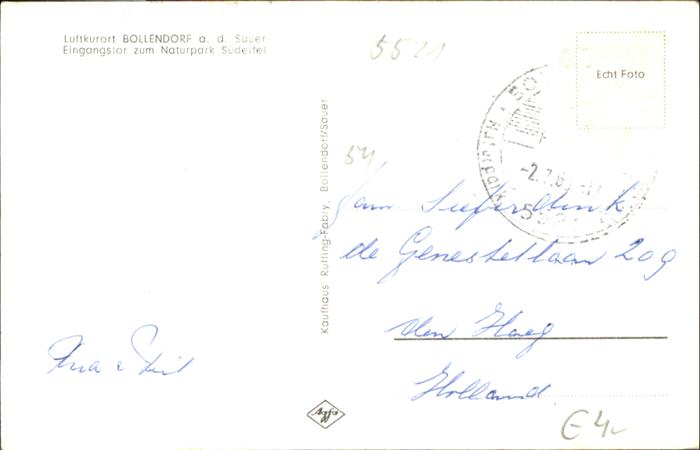 Luftkurort BOLLENDORF a. d. Sauer
Eingangstor zum Naturpark Südeifel
5521
Echt Foto
54
Kaufhaus Rutting-Fabry, Bollendorf/Sauer
-2.7.6
5521
Fam
de Genestetlaan 209
den Haag
Holland
Agfa
€ 4,-